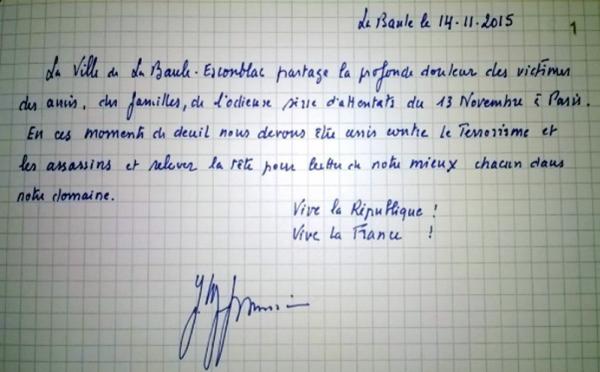 La Baule le 14-11-2015
1
La Ville de La Baule-Escoublac partage la profonde douleur des victimes
des amis, des familles, de l'odieuse série d'attentats du 13 Novembre à Paris.
En ces moments de deuil nous devons être unis contre le Terrorisme et
les assassins et relever la tête pour lutter de notre mieux chacun dans
notre domaine.
Vive la République !
Vive la France !